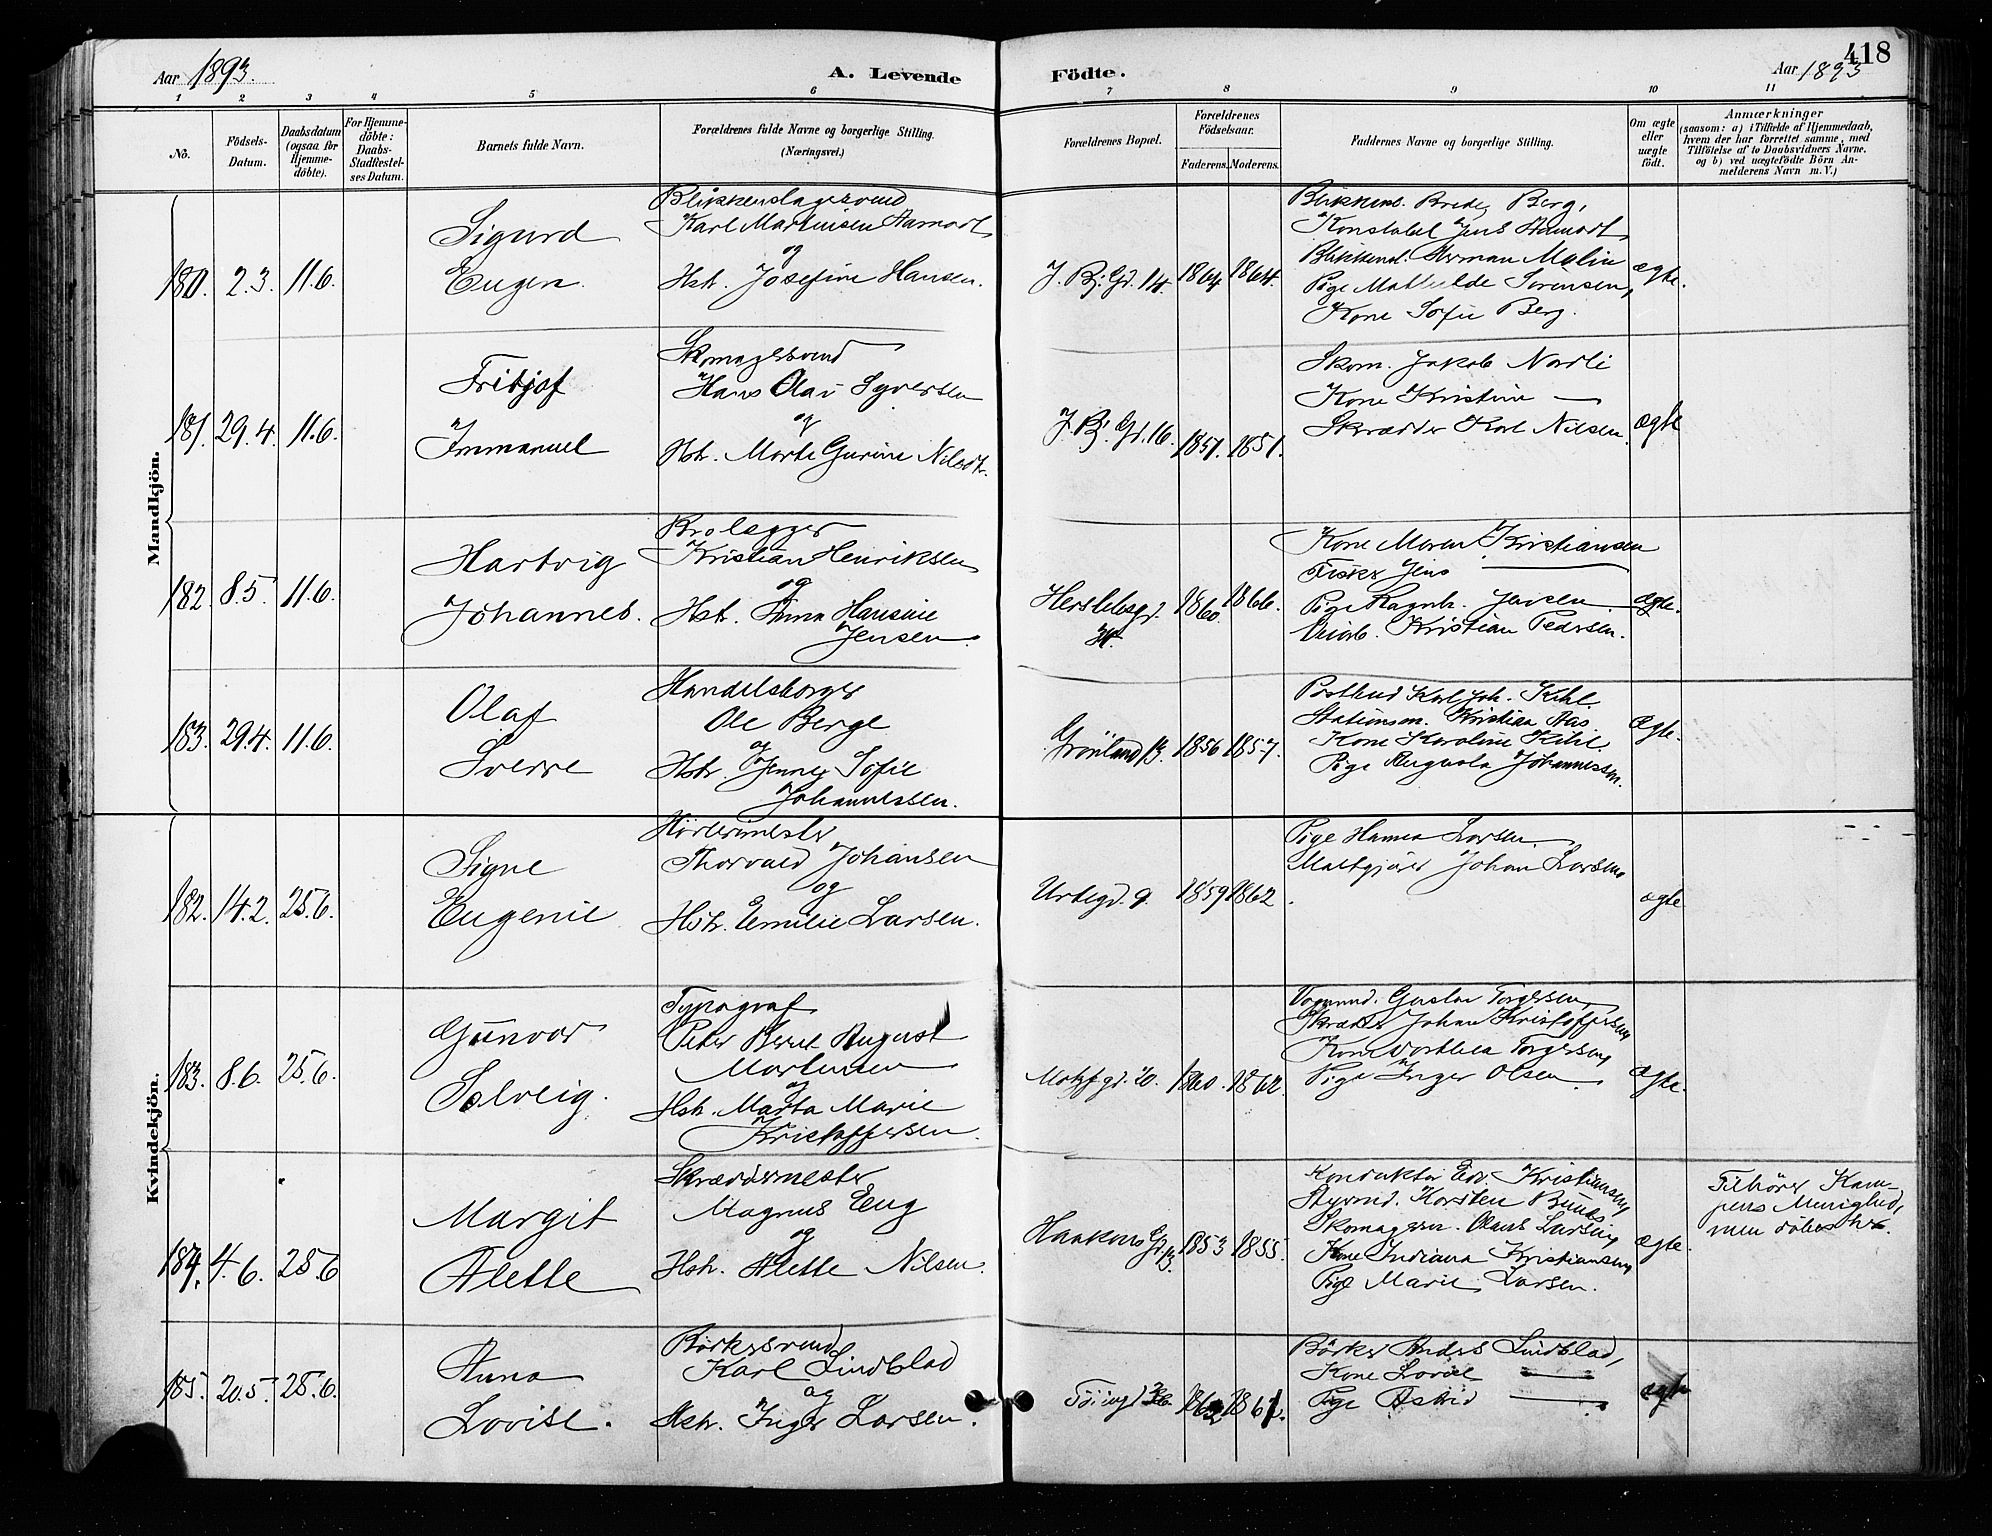 418
Aar 1893. A. Levende Födte. Aar 1893
1 2 3 4 5 6 7 8 9 10 11
No.
Födsels-Datum.
Daabsdatum (ogsaa for Hjemme-döbte).
For Hjemme-döbte: Daabs-Stadfestel-ses Datum.
Barnets fulde Navn.
Forældrenes fulde Navne og borgerlige Stilling.
(Næringsvei.)
Forældrenes Bopæl.
Forældrenes Födselsaar.
Faderens. Moderens.
Faddernes Navne og borgerlige Stilling.
Om ægte eller uægte födt.
Anmærkninger
(saasom: a) i Tilfælde af Hjemmedaab,
hvem der har forrettet samme, med
Tilföielse af to Daabsvidners Navne,
og b) ved uægtefödte Börn An-
melderens Navn m. V.)
Mandkjön.
180. 2.3. 11.6.
Sigurd
Eugen.
Blikkenslagersvend
Karl Martinsen Aamodt
og
Hst. Josefine Hansen.
J. Bj. Gd. 14. 1864 1864.
Blikkens. Brede Berg,
Konstabel Jens Aamodt
Blikkensl. Herman Malin
Pige Mathilde Sörensen,
Kone Sofie Berg.
ægte.
181. 29.4. 11.6.
Fritjof
Immanuel
Skomagersvend
Hans Olav Syversen
og
Hst. Marte Gurine Nilsdt.
J. Bj. Gd. 16. 1851. 1851.
Skom. Jakob Nordli
Kone Kristine —
Skrædder Karl Nilsen.
ægte
182. 8.5. 11.6.
Hartvig
Johannes.
Brolægger
Kristian Henriksen
og
Hst. Anna Hansine
Jensen.
Herslebsgd. 1860. 1866.
Kone Maren Kristiansen
Fisker Jens —
Pige Ragnh. Jensen.
Kristian Pedersen.
ægte.
183. 29.4. 11.6.
Olaf
Sverre
Handelsborger
Ole Berge
og
Hst. Jenny Sofie
Johannessen.
Grönland 13. 1856 1857.
Postbud Karl Joh. Kihl.
Stationsm. Kristian Aas
Kone Karoline Kihl.
Pige Augusta Johannessen.
Ægte.
Kvindekjön.
182. 14.2. 25.6.
Signe
Eugenie
Thorvald Johansen
og
Hst. Emilie Larsen.
Urtegd. 9. 1859 1862
Pige Hanna Larsen.
Maltgjører Johan Larsen
ægte
183. 8.6. 25.6.
Gunvor
Solveig.
Typograf
Peter Bernt August
Mortensen
og
Hst. Marta Marie
Kristoffersen.
Motzfgd. 20. 1860. 1862.
Vognmd. Gustav Torgersen,
Skrædder Johan Kristoffersen
Kone Dorthea Torgersen
Pige Inger Olsen.
ægte.
184. 4.6. 25.6
Margit
Alette
Skræddermester
Magnus Eng
og
Hst. Alette Nilsen.
Haakons Gd. 13. 1853 1855.
Konduktør Edv. Kristiansen,
Styrmd. Torsten Bund,
Skomagersv. Olaus Larsen,
Kone Indiana Kristiansen,
Pige Marie Larsen.
ægte.
Tilhører Kam-
pens Menighed,
men döbes her.
185. 20.5. 25.6.
Anna
Lovise.
Börkersvend
Karl Lindblad
og
Hst. Inger Larsen.
Töiengd 36. 1862 1861.
Börker Anders Lindblad,
Kone Lovise —
Pige Astrid —
ægte